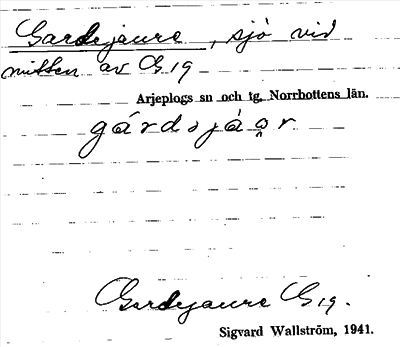 Gardejaure, sjö vid
mitten av G 19
Arjeplogs sn och tg. Norrbottens län.
gárdsjáo̭r
Gardejaure G 19.
Sigvard Wallström, 1941.